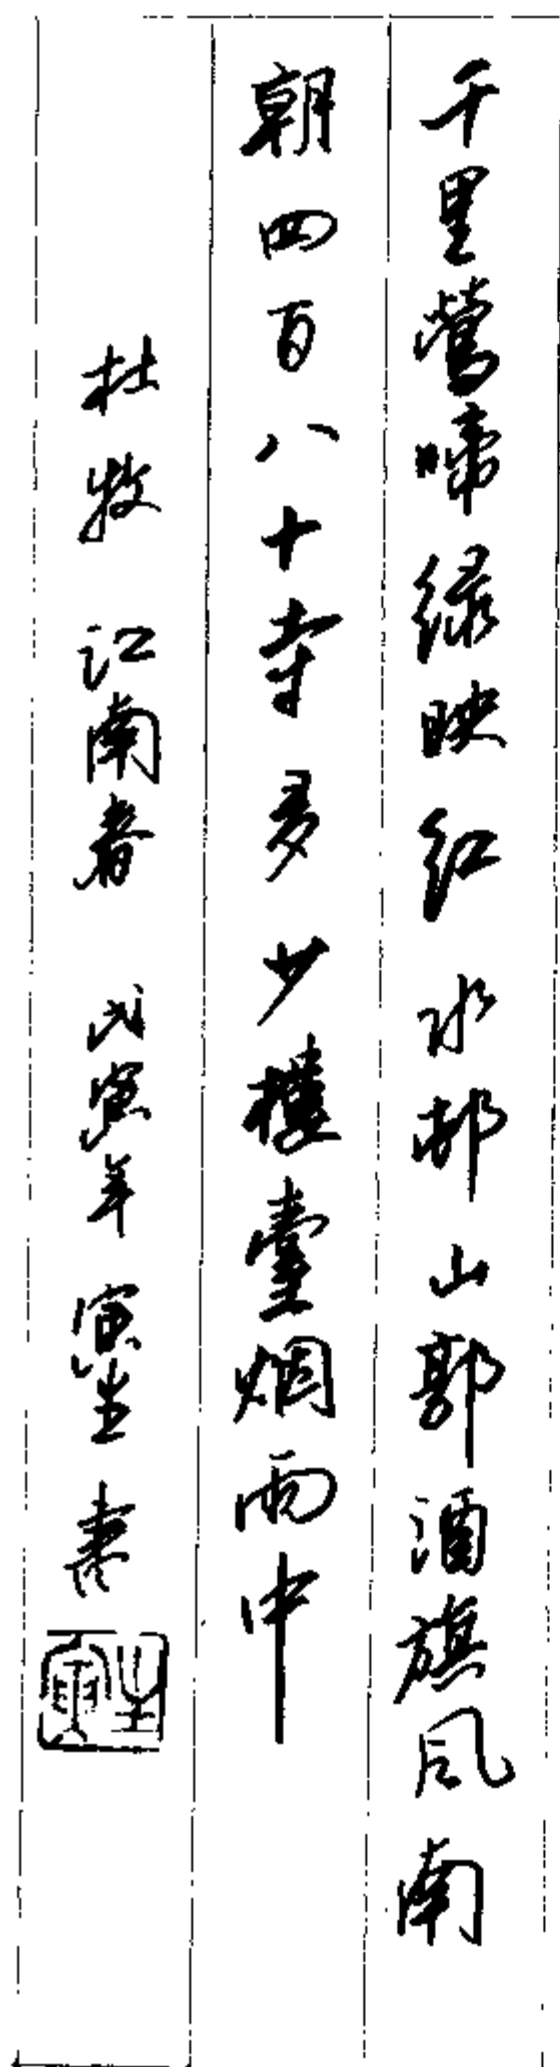 千里莺啼绿映红水邨山郭酒旗风南
朝四百八十寺多少楼臺烟雨中
杜牧 江南春 戊寅年 寅生书
寅生